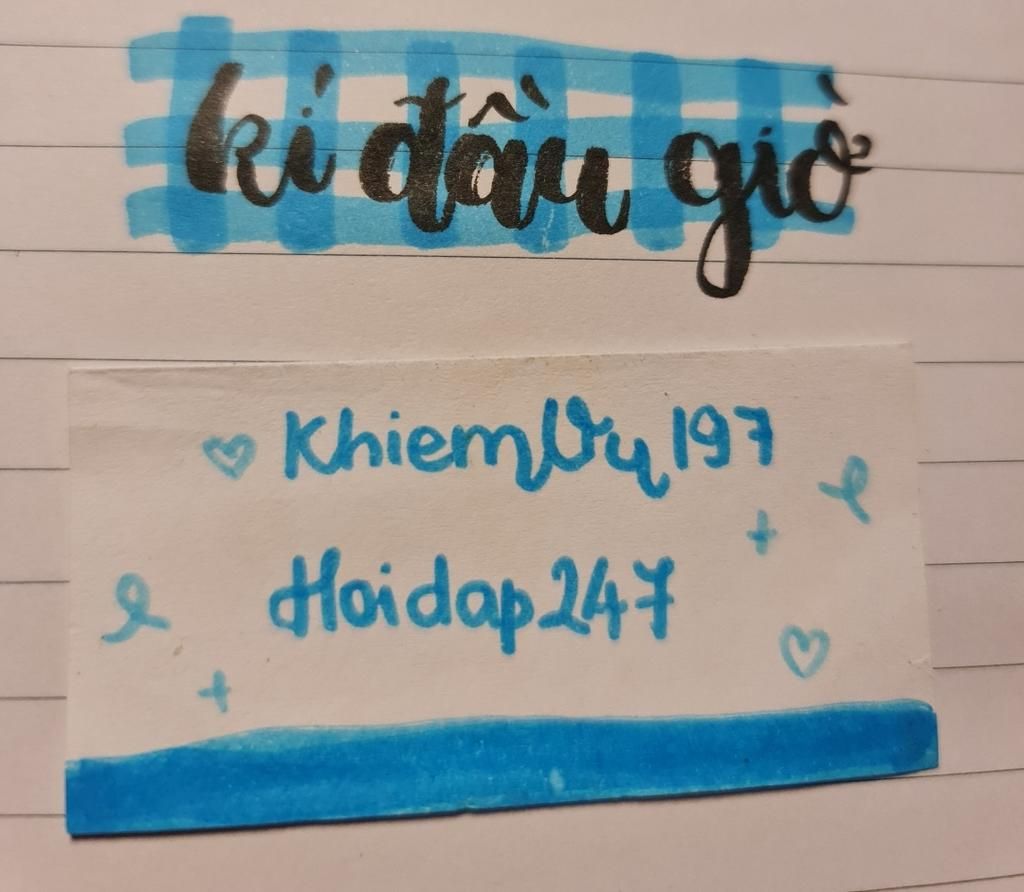 kí đầu giờ
KhiemVu197
Hoidap247